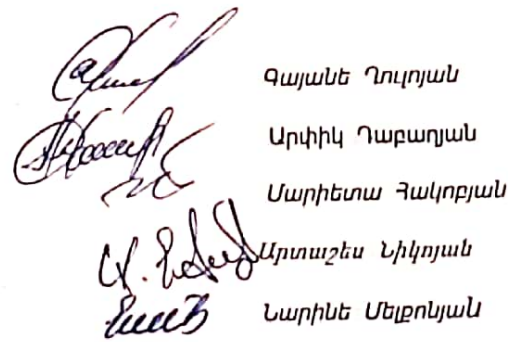 Գայանե Ղուլոյան
Արփիկ Դաբաղյան
Մարիետա Հակոբյան
Արտաշես Նիկոյան
Նարինե Մելքոնյան